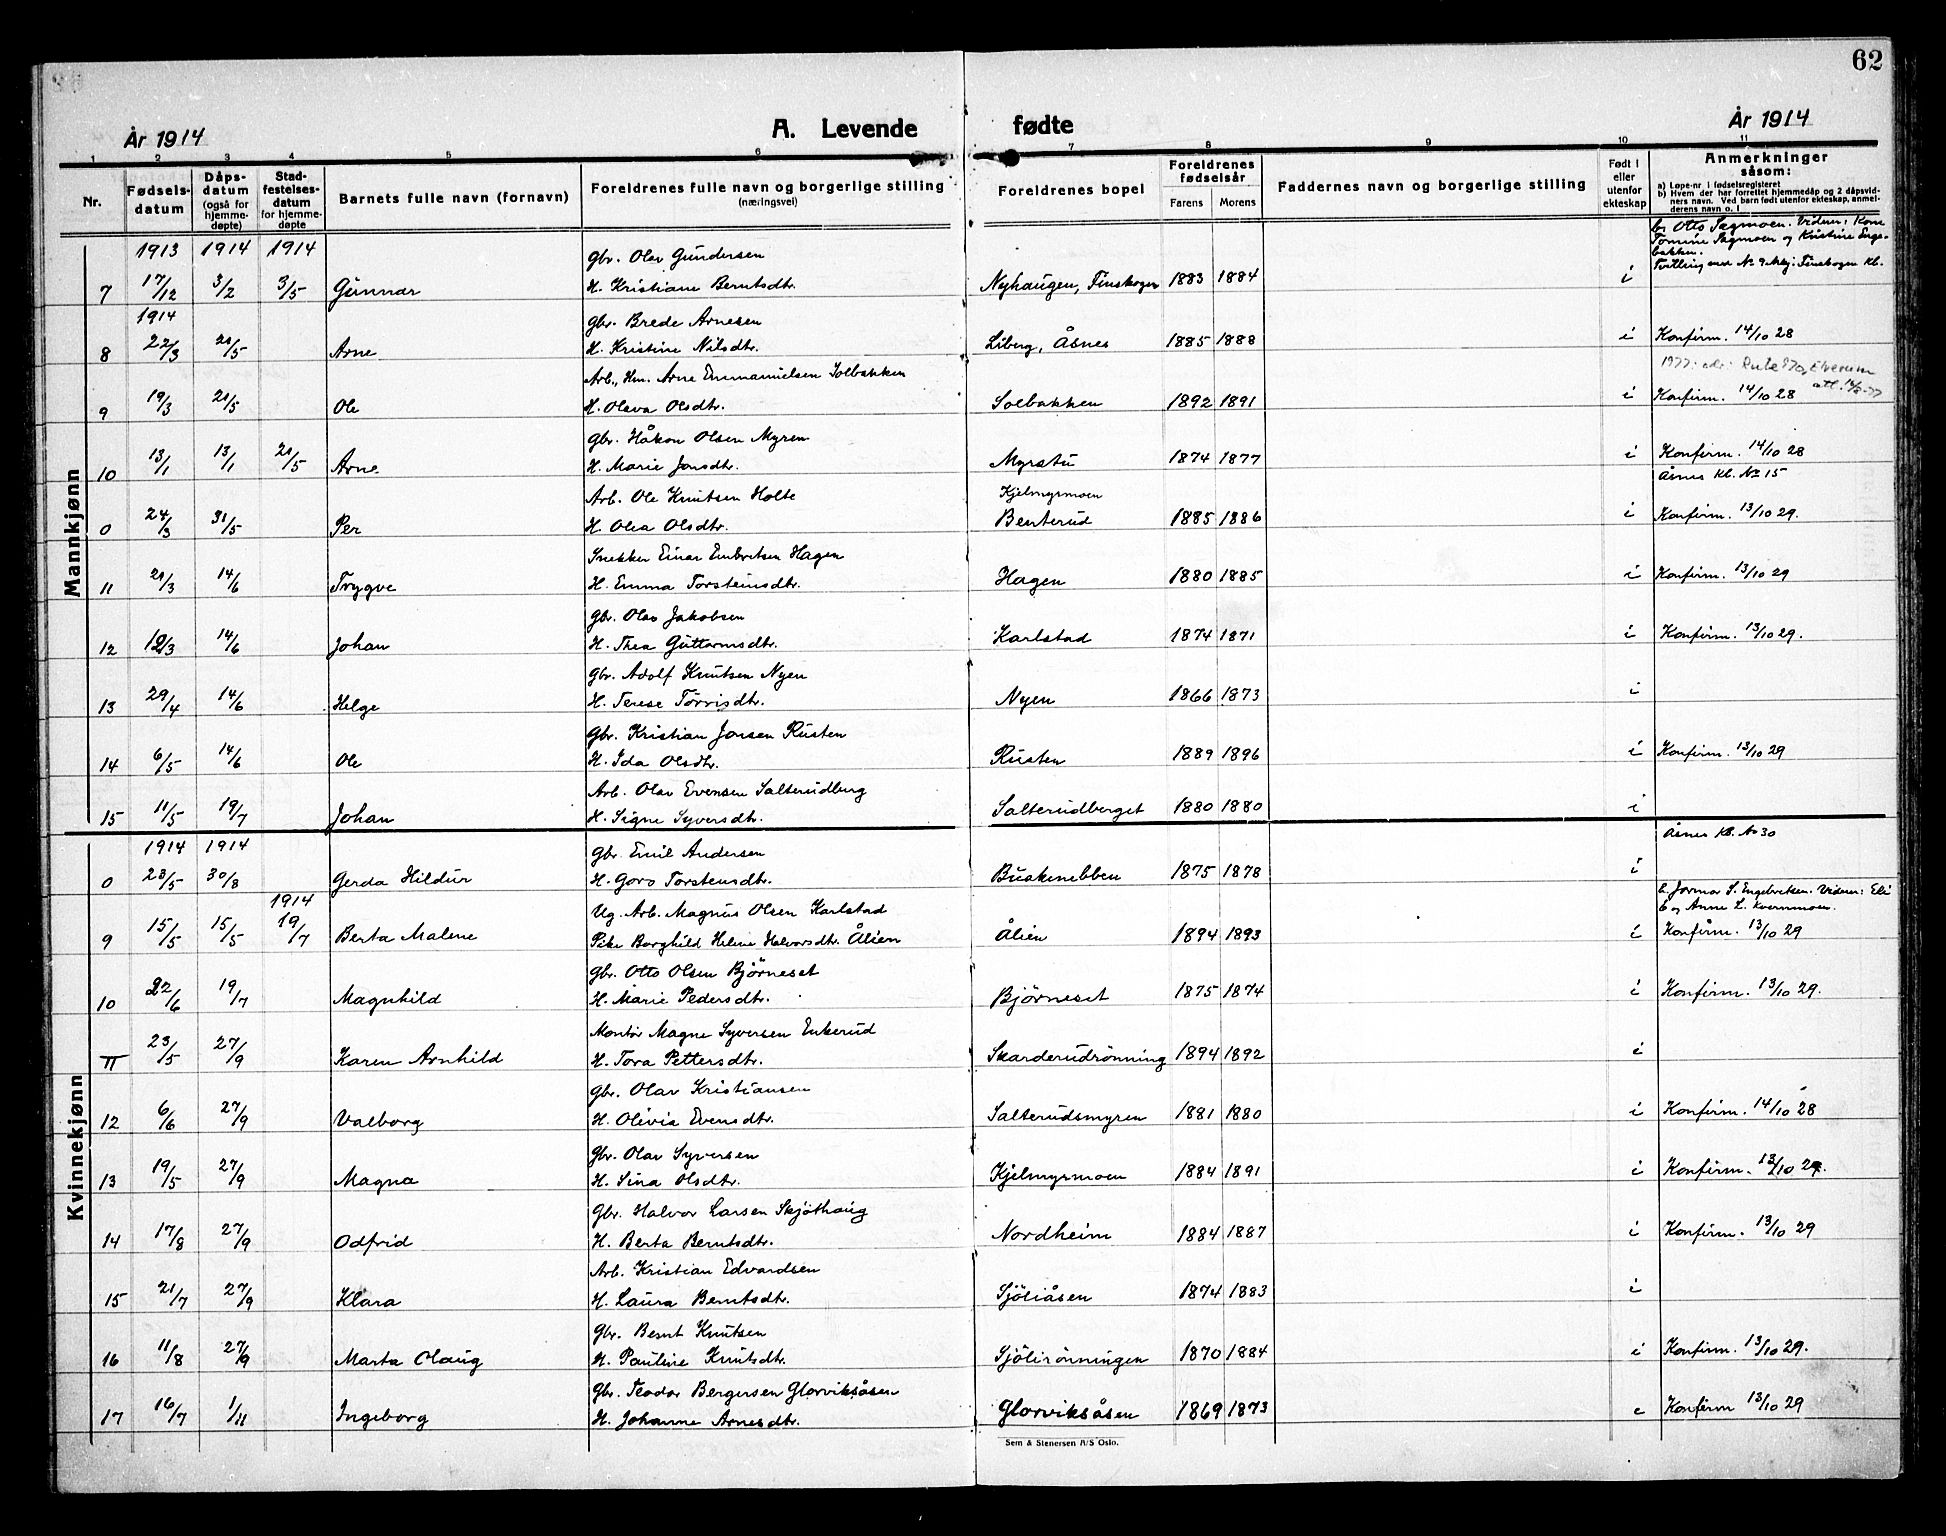 62
År 1914 A. Levende fødte År 1914
1 2 3 4 5 6 7 8 9 10 11
Nr. Fødsels-datum Dåps-datum (også for hjemme-døpte) Stad-festelses-datum for hjemme-døpte Barnets fulle navn (fornavn) Foreldrenes fulle navn og borgerlige stilling (næringsvei) Foreldrenes bopel Foreldrenes fødselsår Farens Morens Faddernes navn og borgerlige stilling Født i eller utenfor ekteskap Anmerkninger såsom:
a) Løpe-nr i fødselsregisteret
b) Hvem der har forrettet hjemmedåp og 2 dåpsvidners navn. Ved barn født utenfor ekteskap, anmelderens navn o. l
Mannkjønn
1913 1914 1914 gbr. Olav Gundersen b, Otto Sagmoen. Vidner: Kom
Tomine Sagmoen og Kristine Enge-
bakken.
7 17/12 3/2 3/5 Gunnar H. Kristiane Berntsdtr. Nyhaugen, Finskogen 1883 1884 i Tvilling med No 9 Mkj. Finskogen Kl.
1914 gbr. Brede Arnesen
8 22/3 21/5 Arne H. Kristine Nilsdtr. Liberg, Åsnes 1885 1888 i Konfirm. 14/10 28
Arb., Hm. Arne Emmanuelsen Solbakken 1977: adr: Rute 870, Elverum
9 19/3 21/5 Ole H. Oleva Olsdtr. Solbakken 1892 1891 i Konfirm. 14/10 28
gbr. Håkon Olsen Myren
10 13/1 13/1 21/5 Arne H. Marie Jonsdtr. Myrstu 1874 1877 i Konfirm. 14/10 28
Arb. Ole Knutsen Holte Kjelmyrmoen Åsnes Kl. No 15
0 24/3 31/5 Per H. Olea Olsdtr. Benterud 1885 1886 i Konfirm. 13/10 29.
Snekker Einar Embretsen Hagen
11 21/3 14/6 Trygve H. Emma Torsteinsdtr. Hagen 1880 1885 i Konfirm. 13/10 29
gbr. Olav Jakobsen
12 12/3 14/6 Johan H. Thea Guttormsdtr. Karlstad 1874 1871 i Konfirm. 13/10 29.
gbr. Adolf Knutsen Nyen
13 29/4 14/6 Helge H. Terese Torrisdtr. Nyen 1866 1873 i
gbr. Kristian Jonsen Rusten
14 6/5 14/6 Ole H. Ida Olsdtr. Rusten 1889 1896 i Konfirm. 13/10 29
Arb. Olav Evensen Salterudberg
15 11/5 19/7 Johan H. Signe Syversdtr. Salterudberget 1880 1880 i
Kvinnekjønn
1914 1914 gbr. Emil Andersen Åsnes Kl. No 30
0 23/5 30/8 Gerda Hildur H. Goro Torstensdtr. Buskenebben 1875 1878 i
1914 Ug. Arb. Magnus Olsen Karlstad b. Jormor S. Engebretsen. Vidner: Eli
E og Anne L. Kvernmoen.
9 15/5 15/5 19/7 Berta Malene Pike Borghild Helene Halvorsdtr. Ålien Ålien 1894 1893 i Konfirm. 13/10 29
gbr. Otto Olsen Björneset
10 22/6 19/7 Magnhild H. Marie Pedersdtr. Björneset 1875 1874 i Konfirm. 13/10 29.
Montör Magne Syversen Enkerud
11 23/5 27/9 Karen Arnhild H. Tora Pettersdtr. Skarderudrönning 1894 1892 i
gbr. Olav Kristiansen
12 6/6 27/9 Valborg H. Olivia Evensdtr. Salterudsmyren 1881 1880 i Konfirm. 14/10 28
gbr. Olav Syversen
13 19/5 27/9 Magna H. Sina Olsdtr. Kjelmyrmoen 1884 1891 i Konfirm. 13/10 29.
gbr. Halvor Larsen Skjöthaug
14 17/8 27/9 Odfrid H. Berta Berntsdtr. Nordheim 1884 1887 i Konfirm. 13/10 29
Arb. Kristian Edvardsen
15 21/7 27/9 Klara H. Laura Berntsdtr. Sjöliåsen 1874 1883 i
gbr. Bernt Knutsen
16 11/8 27/9 Marta Olaug H. Pauline Knutsdtr. Sjölirönningen 1870 1884 i Konfirm. 13/10 29.
gbr. Teodor Bergersen Glorviksåsen
17 16/7 1/11 Ingeborg H. Johanne Arnesdtr. Glorviksåsen 1869 1873 e Konfirm 13/10 29
Sem & Stenersen A/S Oslo.